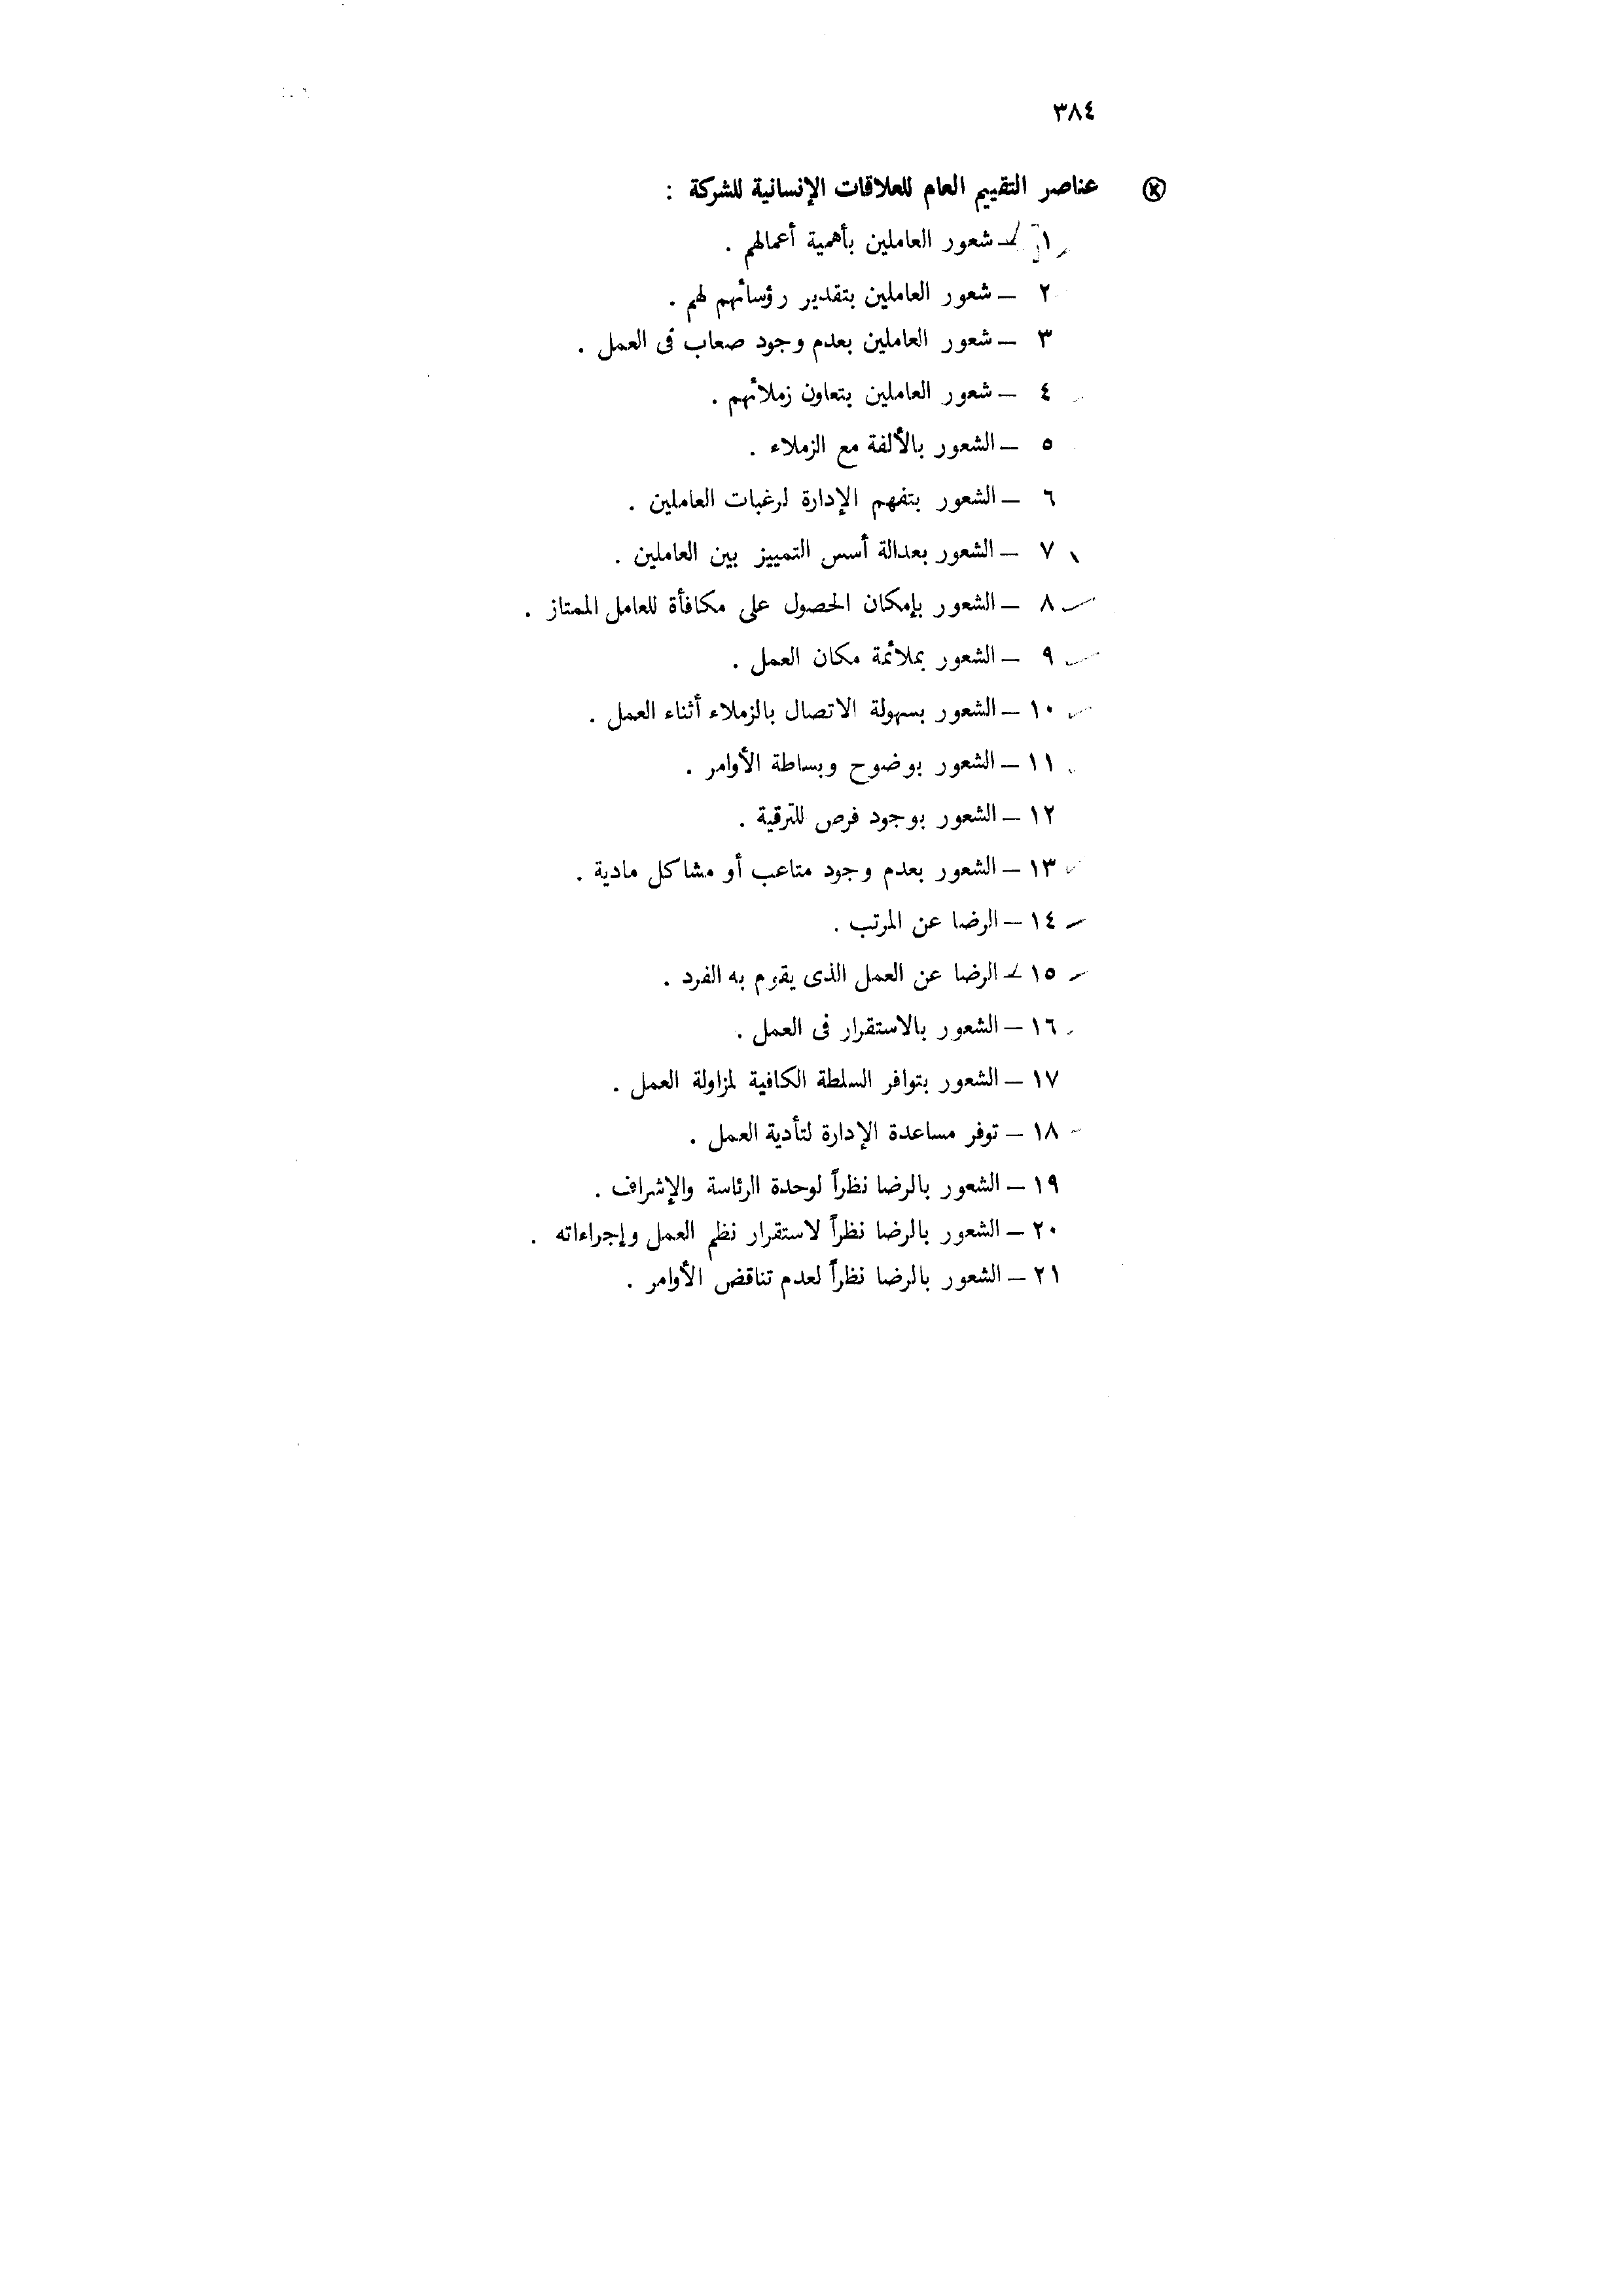 ٣٨٤
عناصر التقييم العام للعلاقات الإنسانية للشركة :
١ – شعور العاملين بأهمية أعمالهم .
٢ – شعور العاملين بتقدير رؤسائهم لهم .
٣ – شعور العاملين بعدم وجود صعاب فى العمل .
٤ – شعور العاملين بتعاون زملائهم .
٥ – الشعور بالألفة مع الزملاء .
٦ – الشعور بتفهم الإدارة لرغبات العاملين .
٧ – الشعور بعدالة أسس التمييز بين العاملين .
٨ – الشعور بإمكان الحصول على مكافأة للعامل الممتاز .
٩ – الشعور بملائمة مكان العمل .
١٠ – الشعور بسهولة الاتصال بالزملاء أثناء العمل .
١١ – الشعور بوضوح وبساطة الأوامر .
١٢ – الشعور بوجود فرص للترقية .
١٣ – الشعور بعدم وجود متاعب أو مشاكل مادية .
١٤ – الرضا عن المرتب .
١٥ – الرضا عن العمل الذى يقوم به الفرد .
١٦ – الشعور بالاستقرار فى العمل .
١٧ – الشعور بتوافر السلطة الكافية لمزاولة العمل .
١٨ – توفر مساعدة الإدارة لتأدية العمل .
١٩ – الشعور بالرضا نظراً لوحدة الرئاسة والإشراف .
٢٠ – الشعور بالرضا نظراً لاستقرار نظم العمل وإجراءاته .
٢١ – الشعور بالرضا نظراً لعدم تناقض الأوامر .